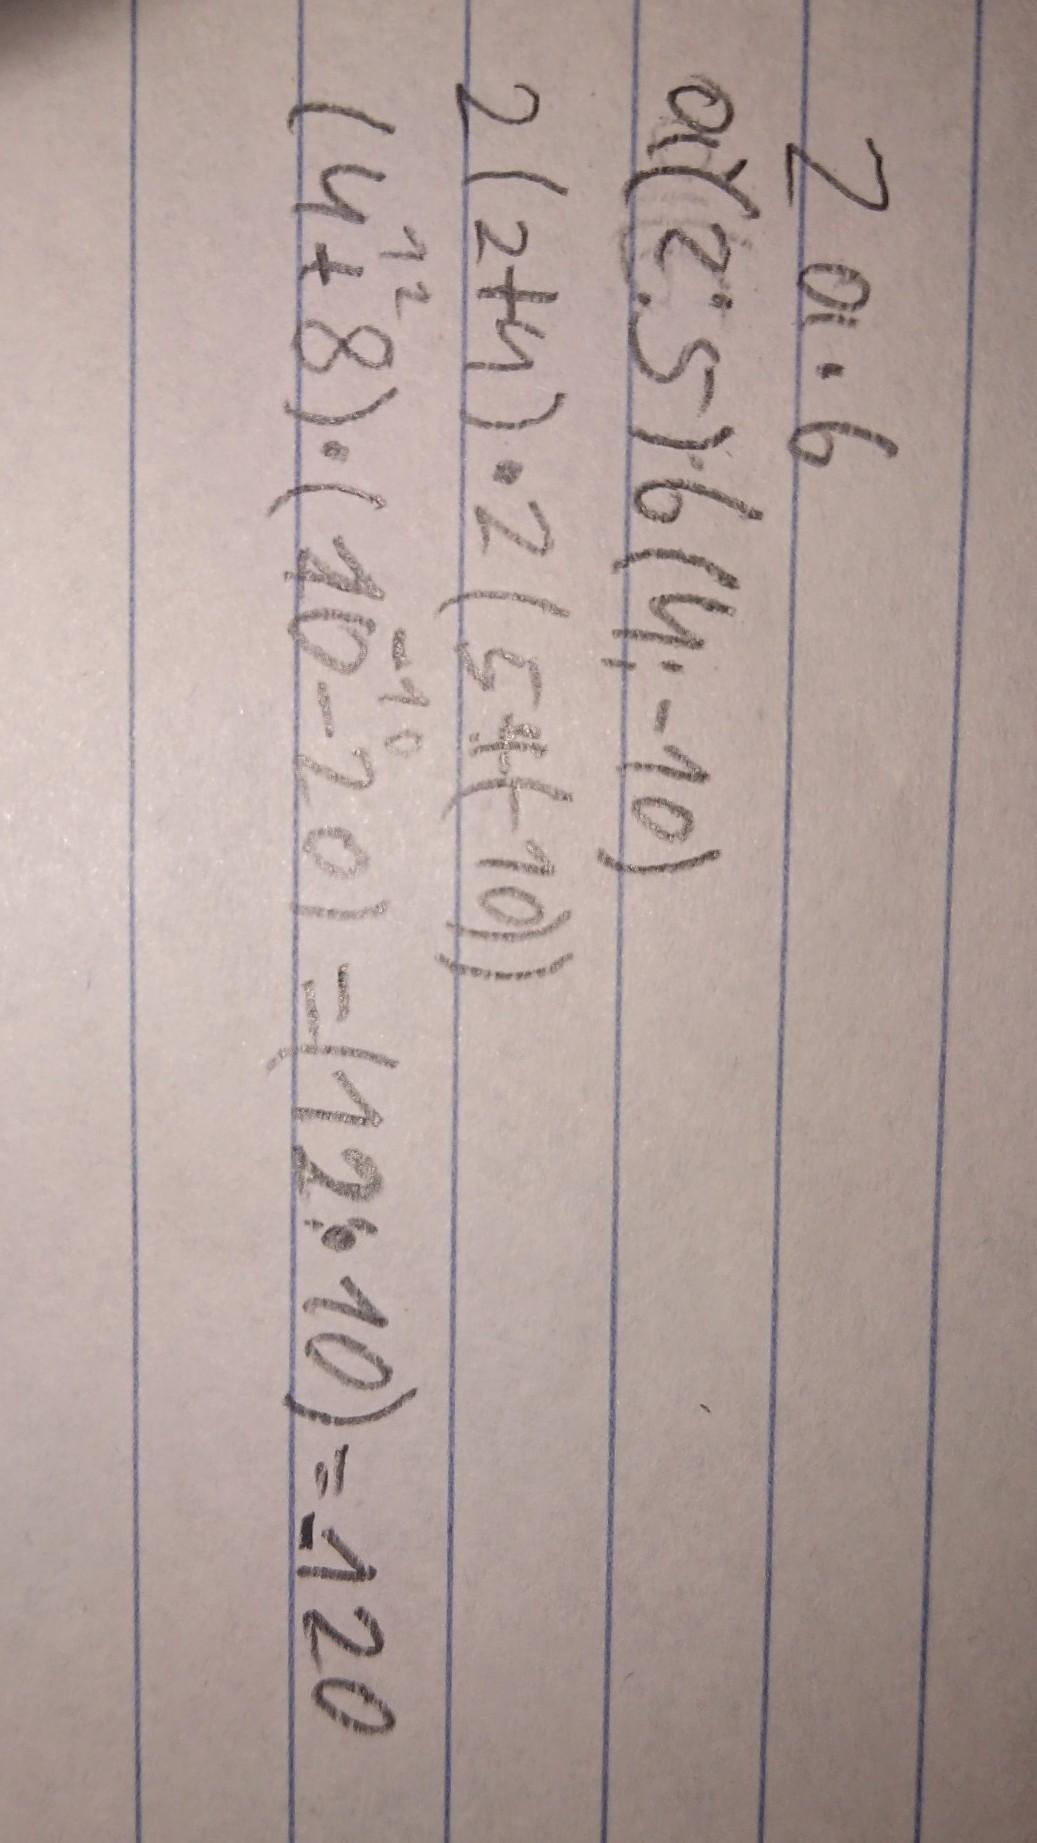 2 a · 6
a(2;5) · b(4;-10)
2(2+4) · 2(5+(-10))
12 -10
(4+8) · (10-20) = (12 · 10) = -120